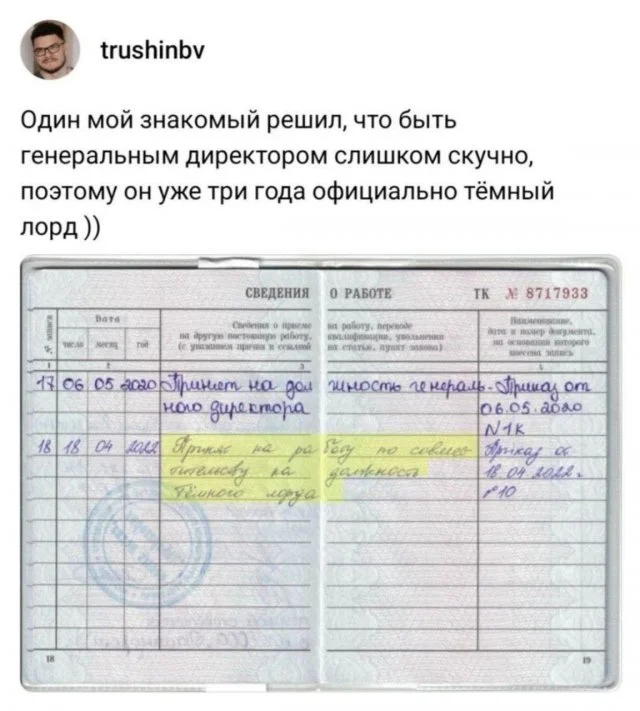 trushinbv
Один мой знакомый решил, что быть
генеральным директором слишком скучно,
поэтому он уже три года официально тёмный
лорд ))
СВЕДЕНИЯ О РАБОТЕ ТК № 8717933
№ записи
Дата
число месяц год
Сведения о приеме на работу, переводе
на другую постоянную работу, квалификации, увольнении
(с указанием причин и ссылкой на статью, пункт закона)
Наименование,
дата и номер документа,
на основании которого
внесена запись
1 2 3 4
17 06 05 2020 Принят на должность генераль- Приказ от
ного директора 06.05.2020
N1К
18 18 04 2022 Принят на работу по совмес Приказ от
тительству на должность 18.04.2022г.
Тёмного лорда №10
18 19